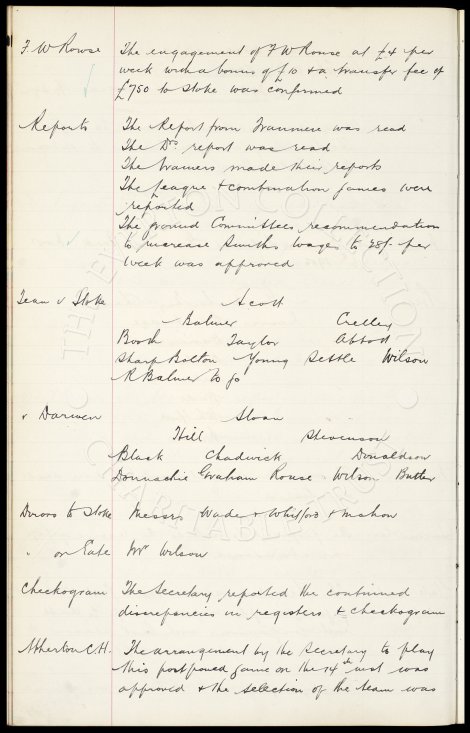 F W Rouse The engagement of F W Rouse at £4 per
week with a bonus of £10 & a transfer fee of
£750 to Stoke was confirmed
Reports The Report from Tranmere was read
The Drs report was read
The trainers made their reports
The League & Combination games were
reported
The ground Committees recommendation
to increase Smiths wages to 28/- per
week was approved
Team v Stoke Scott
Balmer Crelley
Booth Taylor Abbott
Sharp Bolton Young Settle Wilson
R Balmer to go
v Darwen Sloan
Hill Stevenson
Black Chadwick Donaldson
Donnachie Graham Rouse Wilson Butler
Direcs to Stoke Messrs Wade & Whitford & Mahon
" on Gate Mr Wilson
Checkogram The Secretary reported the continued
discrepancies in registers & checkogram
Atherton C.H. The arrangement by the Secretary to play
this postponed game on the 14th inst was
approved & the selection of the team was
THE EVERTON COLLECTION
CHARITABLE TRUST